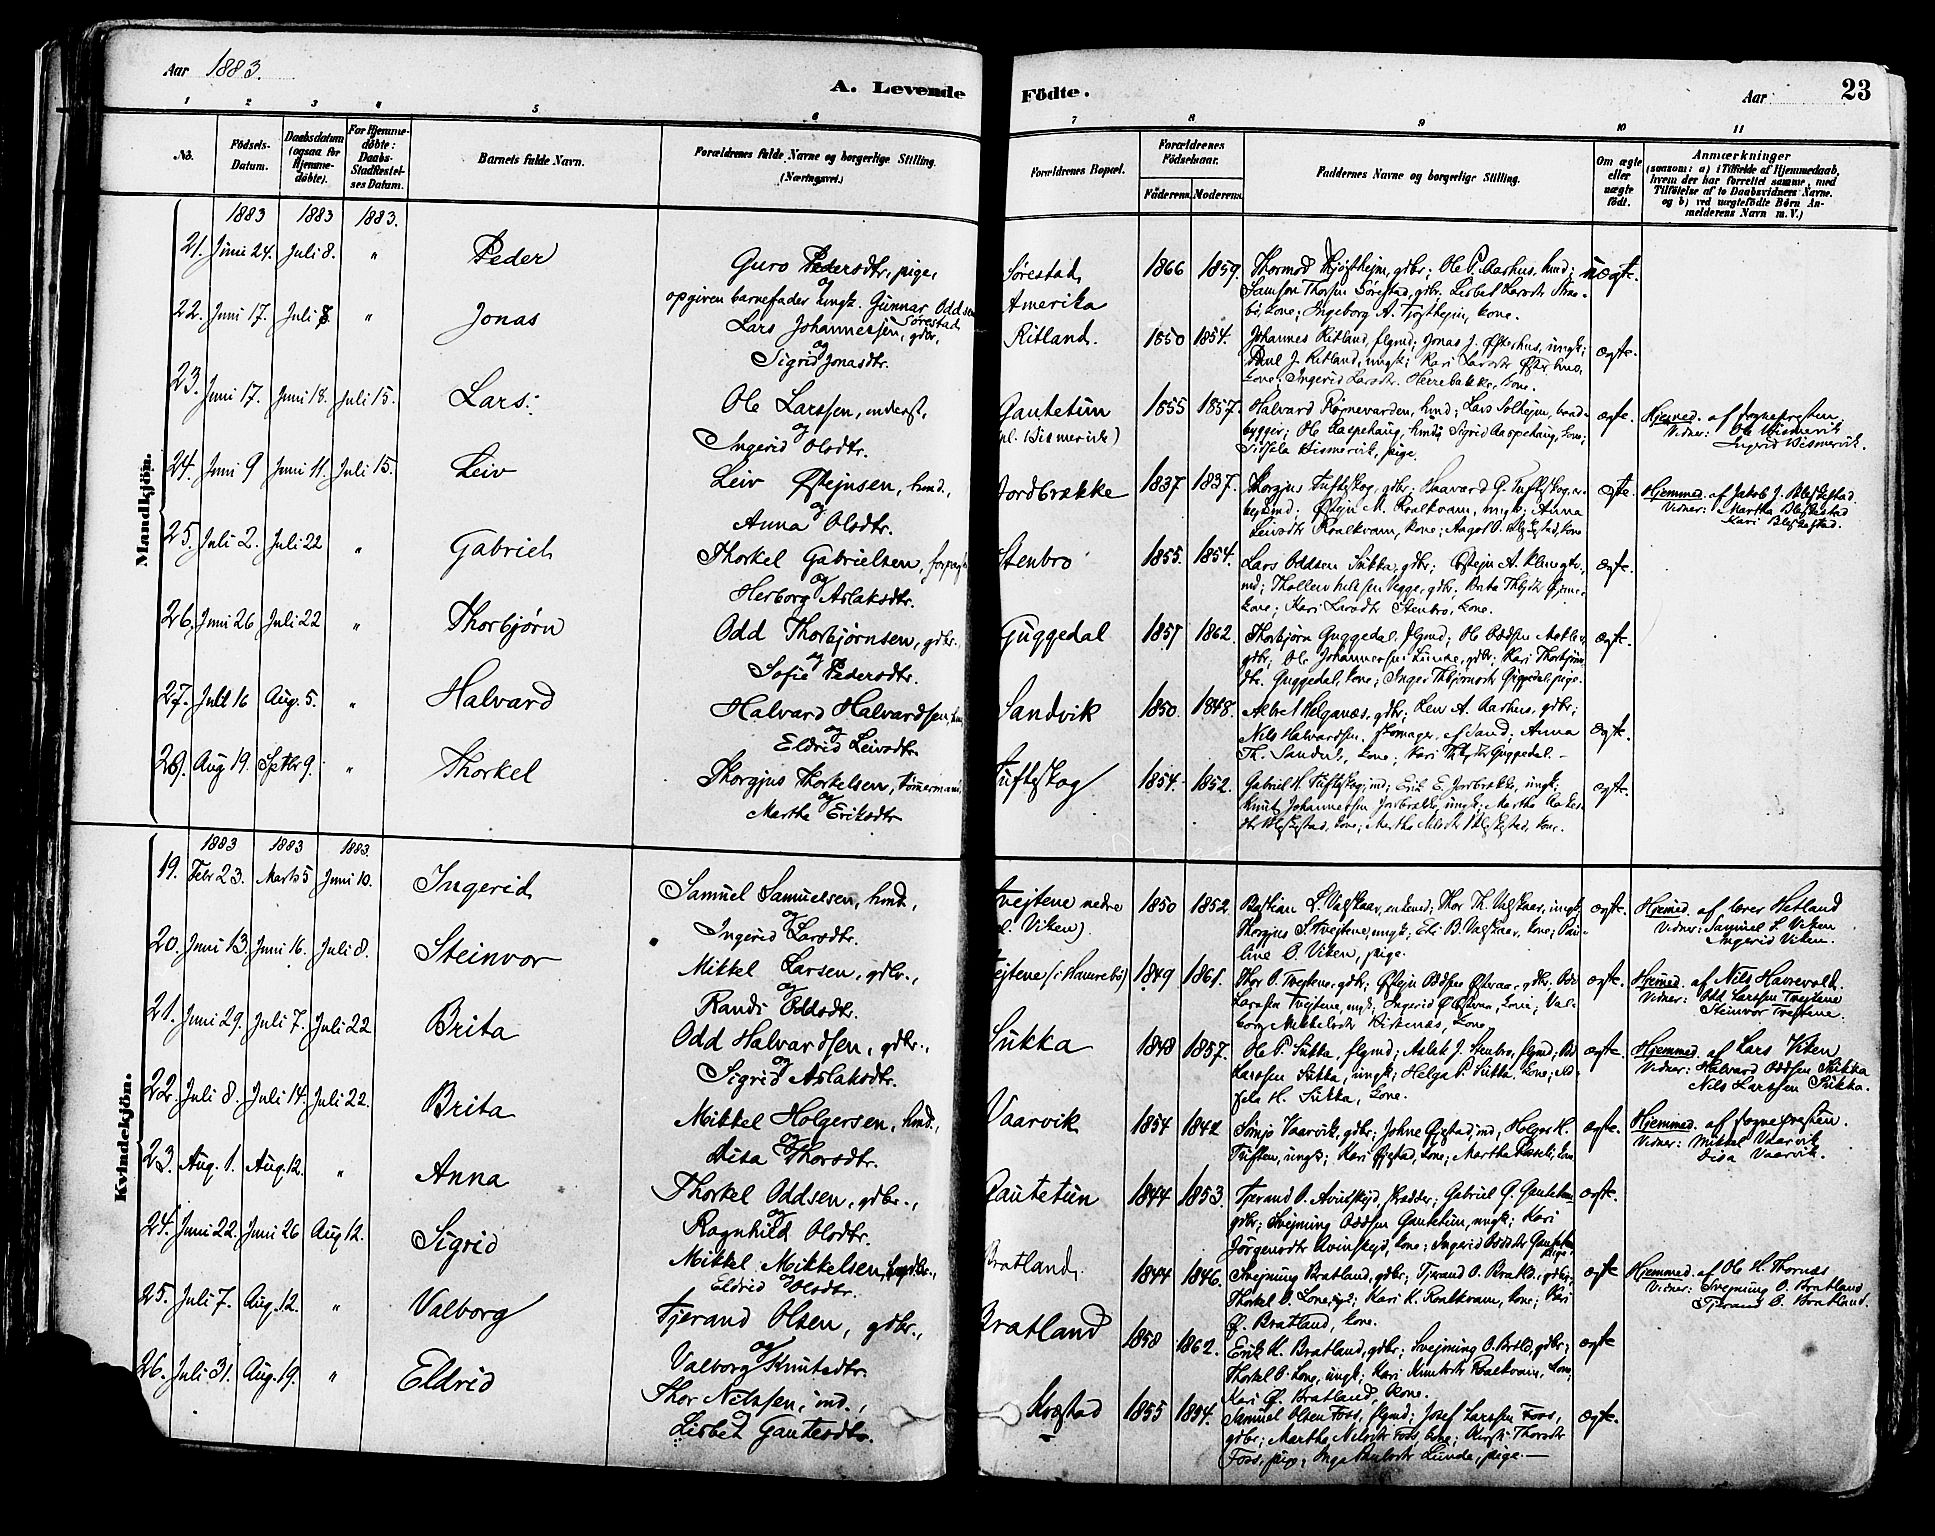 Aar 1883.
A. Levende Födte.
Aar 23
1 2 3 4 5 6 7 8 9 10 11
No.
Födsels-Datum.
Daabsdatum (ogsaa for Hjemme-döbte).
For Hjemme-döbte: Daabs-Stadfæstel-ses Datum.
Barnets fulde Navn.
Forældrenes fulde Navne og borgerlige Stilling. (Næringsvei.)
Forældrenes Bopæl.
Forældrenes Födselsaar.
Faderens. Moderens.
Faddernes Navne og borgerlige Stilling.
Om ægte eller uægte födt.
Anmærkninger
(saasom: a) i Tilfælde af Hjemmedaab,
hvem der har forrettet samme, med
Tilföielse af to Daabsvidners Navne.
og b) ved uægtefödte Börn An-
melderens Navn m. V.)
Mandkjön.
1883 1883 1883.
21. Juni 24. Juli 8. " Peder
Guro Pedersdtr, pige,
og
opgiven barnefader ungk. Gunnar Oddsen
Sørestad
Sørestad
Amerika
1866 1859.
Thormod Tjøstheim, gdbr; Ole P. Aarhus, hmd;
Samson Thorsen Sørestad, gdbr. Lisbet Larsdtr
kone; Ingeborg A. Tjøstheim, kone.
uægte.
22. Juni 17. Juli 8. " Jonas
Lars Johannessen, gdbr,
og
Sigrid Jonasdtr.
Ritland. 1850 1854.
Johannes Ritland, flgmd; Jonas J. Østerhus, ungk;
Paul J. Ritland, ungk; Kari Larsdtr Østerhus,
kone; Ingerid Larsdtr. Herrebakke, kone.
ægte.
23. Juni 17. Juni 18. Juli 15. Lars.
Ole Larssen, inderst,
og
Ingerid Olsdtr.
Gautetun
(pl. Bismervik)
1855 1857.
Halvard Røgnevarden, hmd; Lars Solheim, baad-
bygger; Ole Raspehaug, hmd; Sigrid Raspehaug, kone;
Sidsela Bismervik, pige.
ægte.
Hjemmed. af sognepresten
Vidner: Ole Bismervik
Ingrid Bismervik.
24. Juni 9 Juni 11. Juli 15. Leiv
Leiv Østejnsen, hmd.,
og
Anna Olsdtr.
Jordbrække 1837 1837.
Thorgjus Tufteskog, gdbr. Haavard G. Tufteskog,
Østejn M. Roalkvam, ungk; Anna
Leivsdtr Roalkvam, kone;
ægte.
Hjemmed. af Jakob J. Bleskestad
Vidner: Martha Bleskestad
Kari Bleskestad.
25. Juli 2. Juli 22 " Gabriel
Thorkel Gabrielsen,
og
Herborg Aslaksdtr.
Stenbro 1855. 1854.
Lars Oddsen Sukka, gdbr; Østejn A.
Kari Larsdtr Stenbro, kone.
ægte.
26. Juni 26 Juli 22 " Thorbjørn
Odd Thorbjørnsen, gdbr.,
og
Sofie Pedersdtr.
Guggedal 1857 1862.
Thorbjørn Guggedal, flgmd; Ole Oddsen
gdbr; Ole Johannessen Lunde, gdbr; Kari Thorbjørns-
dtr. Guggedal, kone; Inger Thbjørnsdtr Guggedal, pige.
ægte.
27. Juli 16 Aug. 5. " Halvard
Halvard Halvardsen,
og
Eldrid Leivsdtr.
Sandvik 1850. 1848.
Helganæs, gdbr; A. Aarhus, gdbr;
Nils Halvardsen, skomager, af Sand; Anna
Th. Sandvik, kone; Kari Guggedal.
ægte.
28. Aug 19. Septbr 9. " Thorkel
Thorgjus Thorkelsen, tømmermand
og
Martha Eriksdtr
Tufteskog 1854. 1852.
Gabriel H. Tufteskog, ind; Erik E. Jorbrække, ungk;
Knut Johannessen Jorbrække, ungk; Martha
Bleskestad, kone; Martha Nilsdtr Bleskestad, kone.
ægte.
Kvindekjön.
1883 1883 1883.
19. Febr 23. Marts 5 Juni 10. Ingerid
Samuel Samuelsen, hmd,
og
Ingerid Larsdtr.
Tvejtene nedre
(pl. Viken).
1850 1852
Bastian L. Valskaar, enkemd; Thor Th. Valskaar, ungk;
Thorgjus S. Tvejtene, ungk; Eli B. Valskaar, kone; Pau-
line O. Viken, pige.
ægte.
Hjemmed. af lærer Hetland
Vidner: Samuel L. Viken
Ingerid Viken.
20. Juni 13. Juni 16. Juli 8. Steinvor
Mikkel Larsen, gdbr.,
og
Randi Oddsdtr.
Tvejtene (i Hamrebø) 1849 1861.
Thor O. Tvejtene, gdbr; Østejn Oddsen gdbr;
Larssen Tvejtene, ungk; Ingerid kone; Val-
borg Mikkelsdtr kone.
ægte.
Hjemmed. af Nils Havrevold.
Vidner: Odd Larssen Tvejtene
Steinvor Tvejtene.
21. Juni 29. Juli 7. Juli 22 Brita
Odd Halvardsen, gdbr.,
og
Sigrid Aslaksdtr.
Sukka 1848 1857.
Ole P. Sukka, flgmd; Aslak J. Stenbro, flgmd;
Larssen Sukka, ungk; Helga P. Sukka, kone;
H. Sukka, kone.
ægte.
Hjemmed. af Lars Viken
Vidner: Halvard Oddsen Sukka
Nils Larssen Sukka.
22. Juli 8. Juli 14. Juli 22. Brita
Mikkel Holgersen, hmd.,
og
Disa Thorsdtr.
Vaarvik 1854 1842
Vaarvik, gdbr; Johne Øjestad, ind; Holger H.
Tuften, ungk; Kari Øjestad, kone; Martha
ægte.
Hjemmed. af sognepresten.
Vidner: Mikkel Vaarvik
Disa Vaarvik.
23. Aug. 1. Aug. 12. " Anna
Thorkel Oddsen, gdbr.,
og
Ragnhild Olsdtr.
Gautetun 1844 1853.
Tjerand O. skrædder; Gabriel G. Gautetun
gdbr; Svejnung Oddsen Gautetun, ungk; Kari
Jørgensdtr kone; Ingerid Oddsdtr Gautetun
pige.
ægte.
24. Juni 22. Juni 26 Aug 12. Sigrid
Mikkel Mikkelsen,
og
Eldrid Olsdtr.
Bratland. 1844 1846.
Svejnung Bratland, gdbr; Tjerand O. Bratld. gdbr;
Thorkel O. Lone, Kari K. Roalkvam, kone; Kari
Ø. Bratland, kone.
ægte
Hjemmed. af Ole H. Thornæs
Vidner: Svejnung O. Bratland
Tjerand O. Bratland.
25. Juli 7. Aug. 12. " Valborg
Tjerand Olsen, gdbr.,
og
Valborg Knutsdtr.
Bratland 1858 1862.
Erik K. Bratland, gdbr; Svejnung O. Bratld, gdbr;
Thorkel O. Lone, ungk; Kari Knutsdtr Roalkvam, kone;
Kari Ø. Bratland, kone.
ægte
26. Juli 31. Aug. 19. " Eldrid
Thor Nilssen, ind.,
og
Lisbet Gautesdtr.
1855 1854.
Samuel Olsen Foss, flgmd; Josef Larssen Foss,
gdbr; Martha Nilsdtr Foss, kone; Kirsti Thorsdtr
Foss, pige; Inga Paulsdtr Lunde, pige.
ægte.